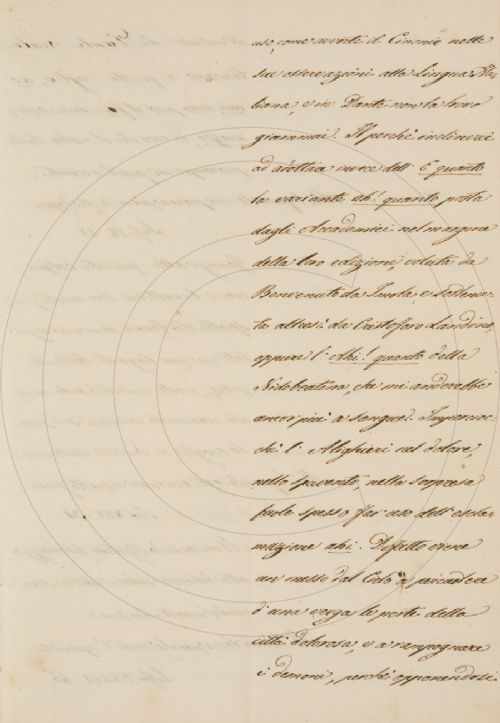 uso, come avverte il Cinonio nelle
sue osservazioni alla Lingua Ita-
liana, e in Dante non la trovi
giammai. Il perchè inclinerei
ad adottar invece dell' E quanto
la variante eh! quanto posta
dagli Accademici nel margine
della loro edizione, voluta da
Benvenuto da Imola, e sostenu-
ta altresì da Cristoforo Landino,
oppure l' Ahi! quanto della
Nidobeatina, che mi anderebbe
ancor più a sangue. Imperoc-
chè l' Alighieri nel dolore,
nello spavento, nella sorpresa
suole spesso far uso dell' escla-
mazione ahi. Difatto
un messo dal Cielo a percuotere
d' una verga le porte della
città dolorosa, e a rampognare
i demoni, perchè opponendosi